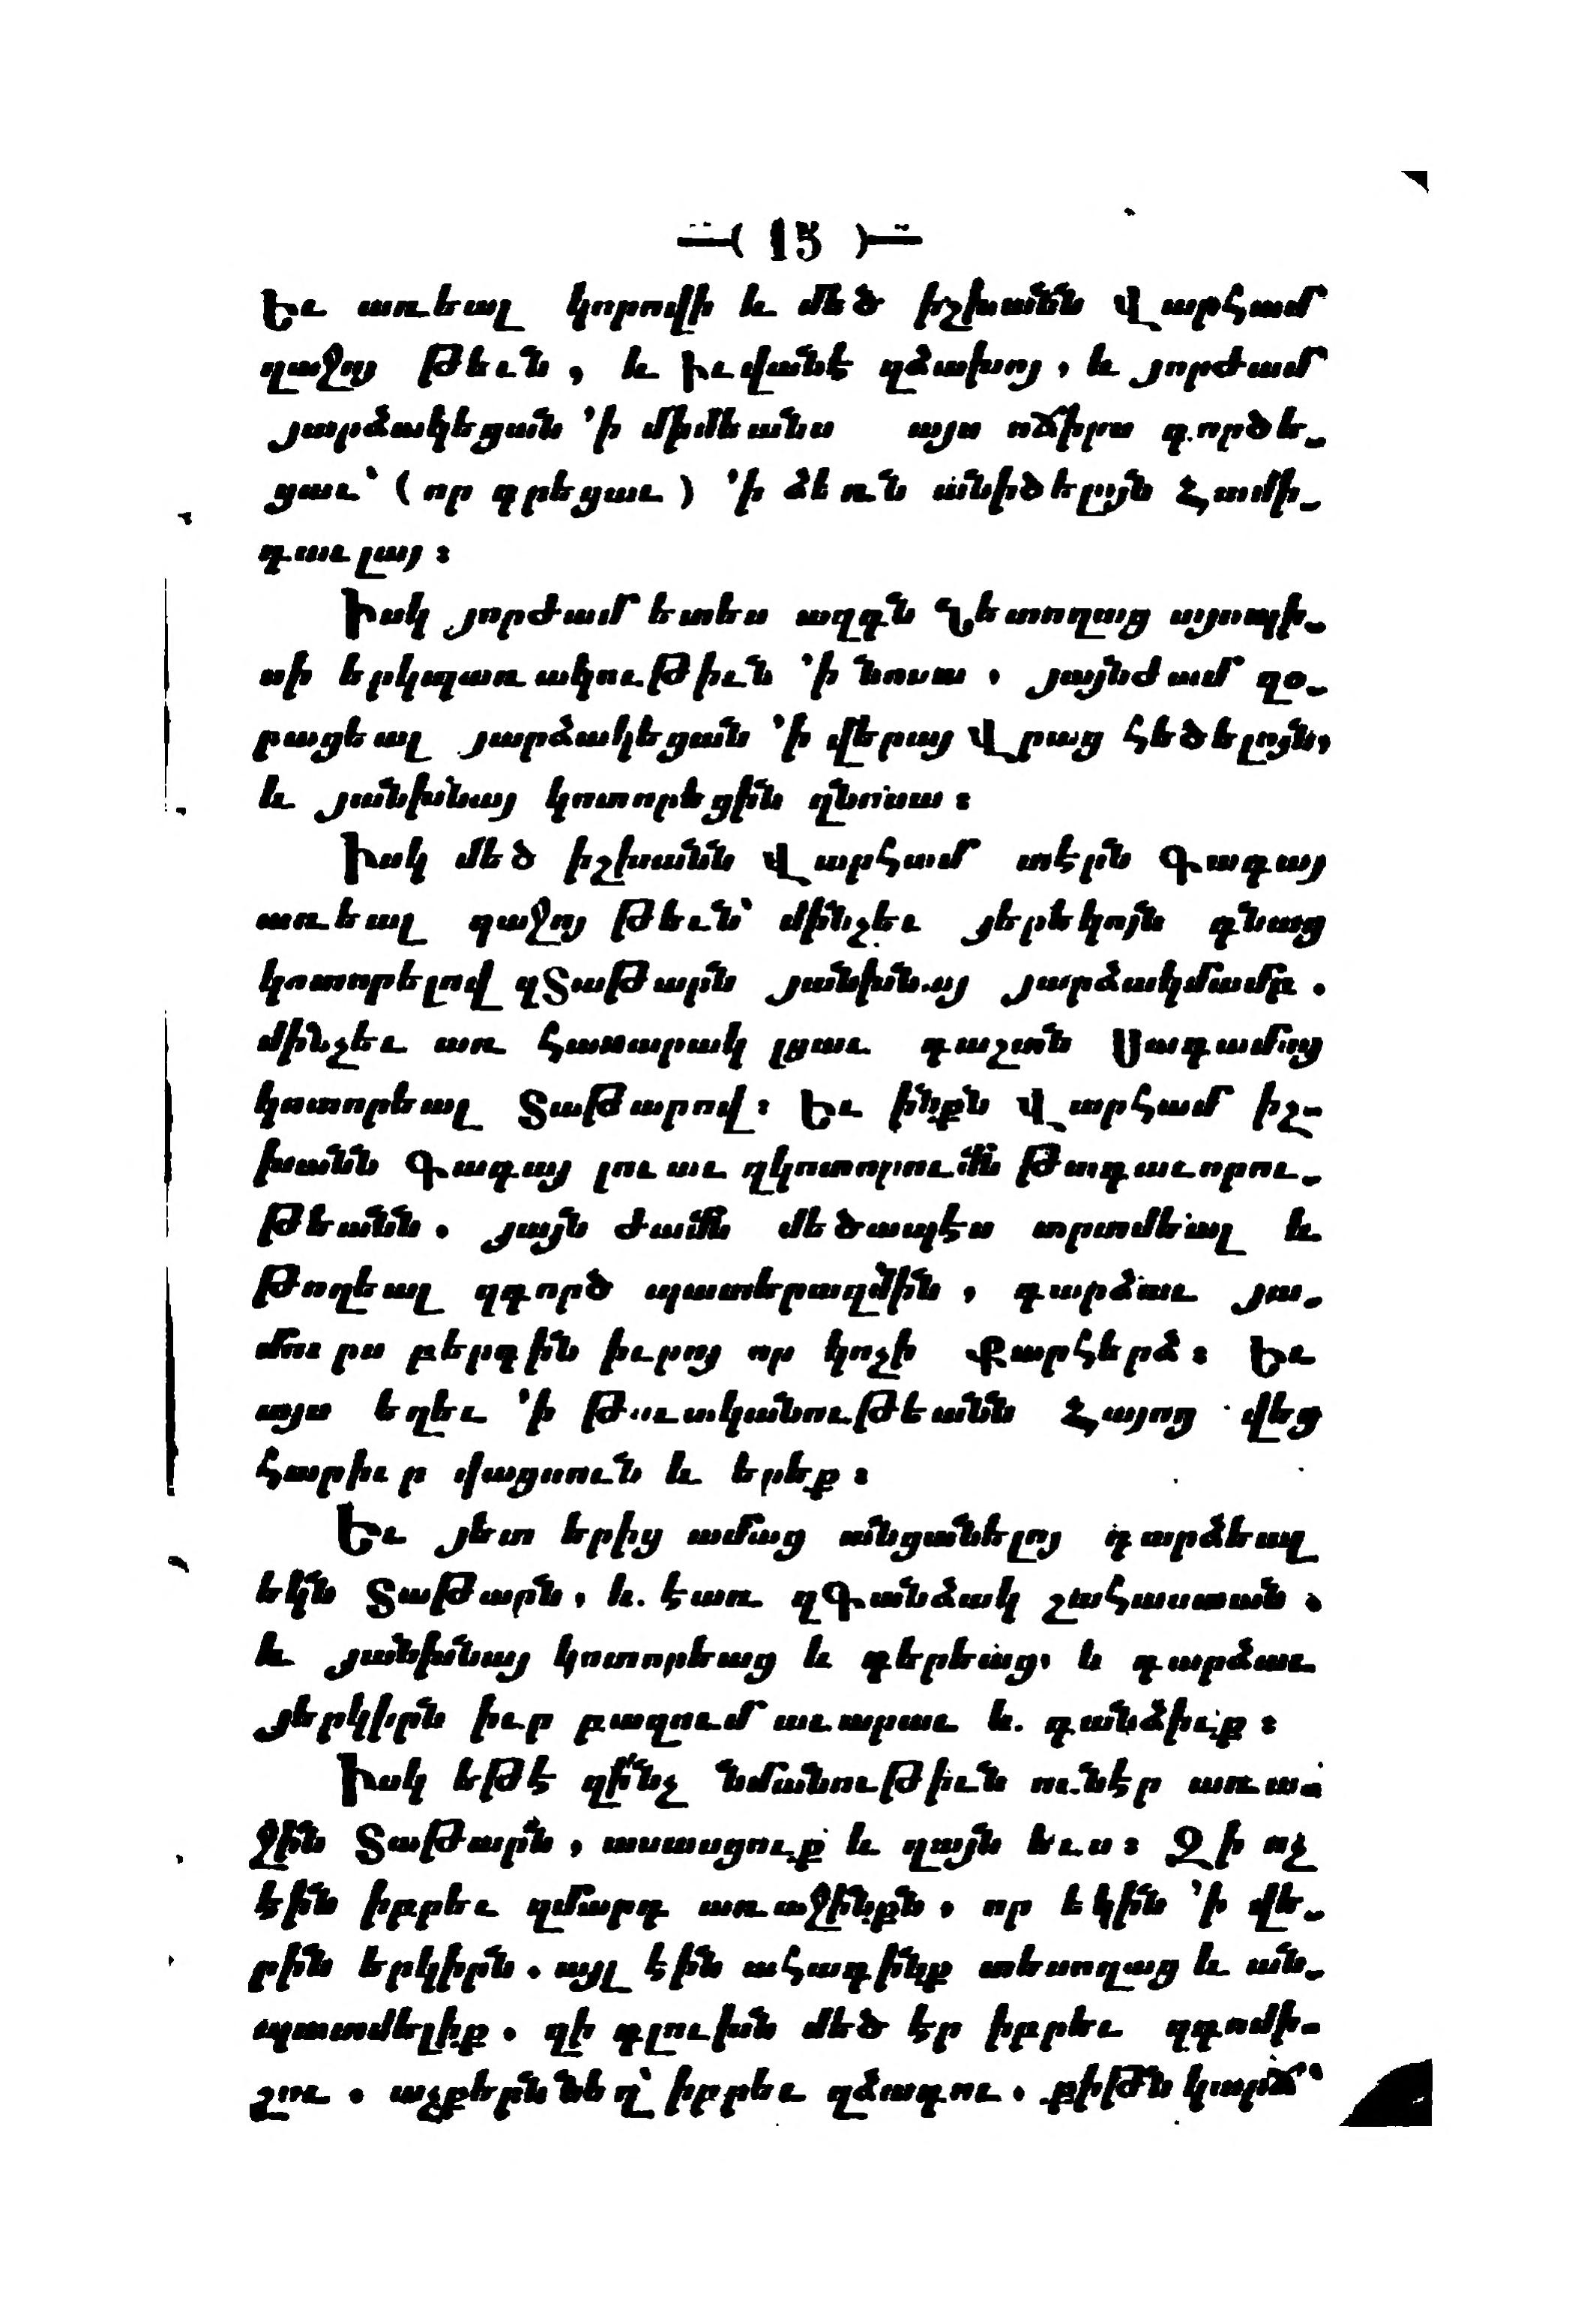 —( 15 )—
Եւ առեալ կորովի և մեծ իշխանն Վարհամ
զաջոյ թեւն, և Իւվանէ զձախոյ, և յորժամ
յարձակեցան ՚ի միմեանս այս ոճիրս գործե-
ցաւ՝ (որ գրեցաւ) ՚ի ձեռն անիծելոյն Համի-
գաւլայ։
Իսկ յորժամ ետես ազգն Նետողաց այսպի-
սի երկպառակութիւն ՚ի նոսա, յայնժամ զօ-
րացեալ յարձակեցան ՚ի վերայ Վրաց հեծելոյն,
և յանխնայ կոտորեցին զնոսա։
Իսկ մեծ իշխանն Վարհամ տէրն Գագայ
առեալ զաջոյ թեւն՝ մինչեւ յերեկոյն գնաց
կոտորելով զՏաթարն յանխնայ յարձակմամբ.
մինչեւ առ հասարակ լցաւ դաշտն Սագամայ
կոտորեալ Տաթարով։ Եւ ինքն Վարհամ իշ-
խանն Գագայ լուաւ զկոտորումն Թագաւորու-
թեանն. յայն ժամն մեծապէս տրտմեալ և
թողեալ զգործ պատերազմին, դարձաւ յա-
մուրս բերդին իւրոյ որ կոչի Քարհերձ։ Եւ
այս եղեւ ՚ի Թուականութեանն Հայոց վեց
հարիւր վաթսուն և երեք։
Եւ յետ երից ամաց անցանելոյ դարձեալ
եկն Տաթարն, և էառ զԳանձակ շահաստան.
և յանխնայ կոտորեաց և գերեաց, և դարձաւ
յերկիրն իւր բազում աւարաւ և գանձիւք։
Իսկ եթէ զի՞նչ նմանութիւն ունէր առա-
ջին Տաթարն, ասասցուք և զայն ևս։ Զի ոչ
էին իբրեւ զմարդ առաջինքն, որ եկին ՚ի վե-
րին երկիրն. այլ էին ահագինք տեսողաց և ան-
պատմելիք. զի գլուխն մեծ էր իբրեւ զգոմի-
շու. աչքերն նեղ՝ իբրեւ զձագու. քիթն կարճ՝